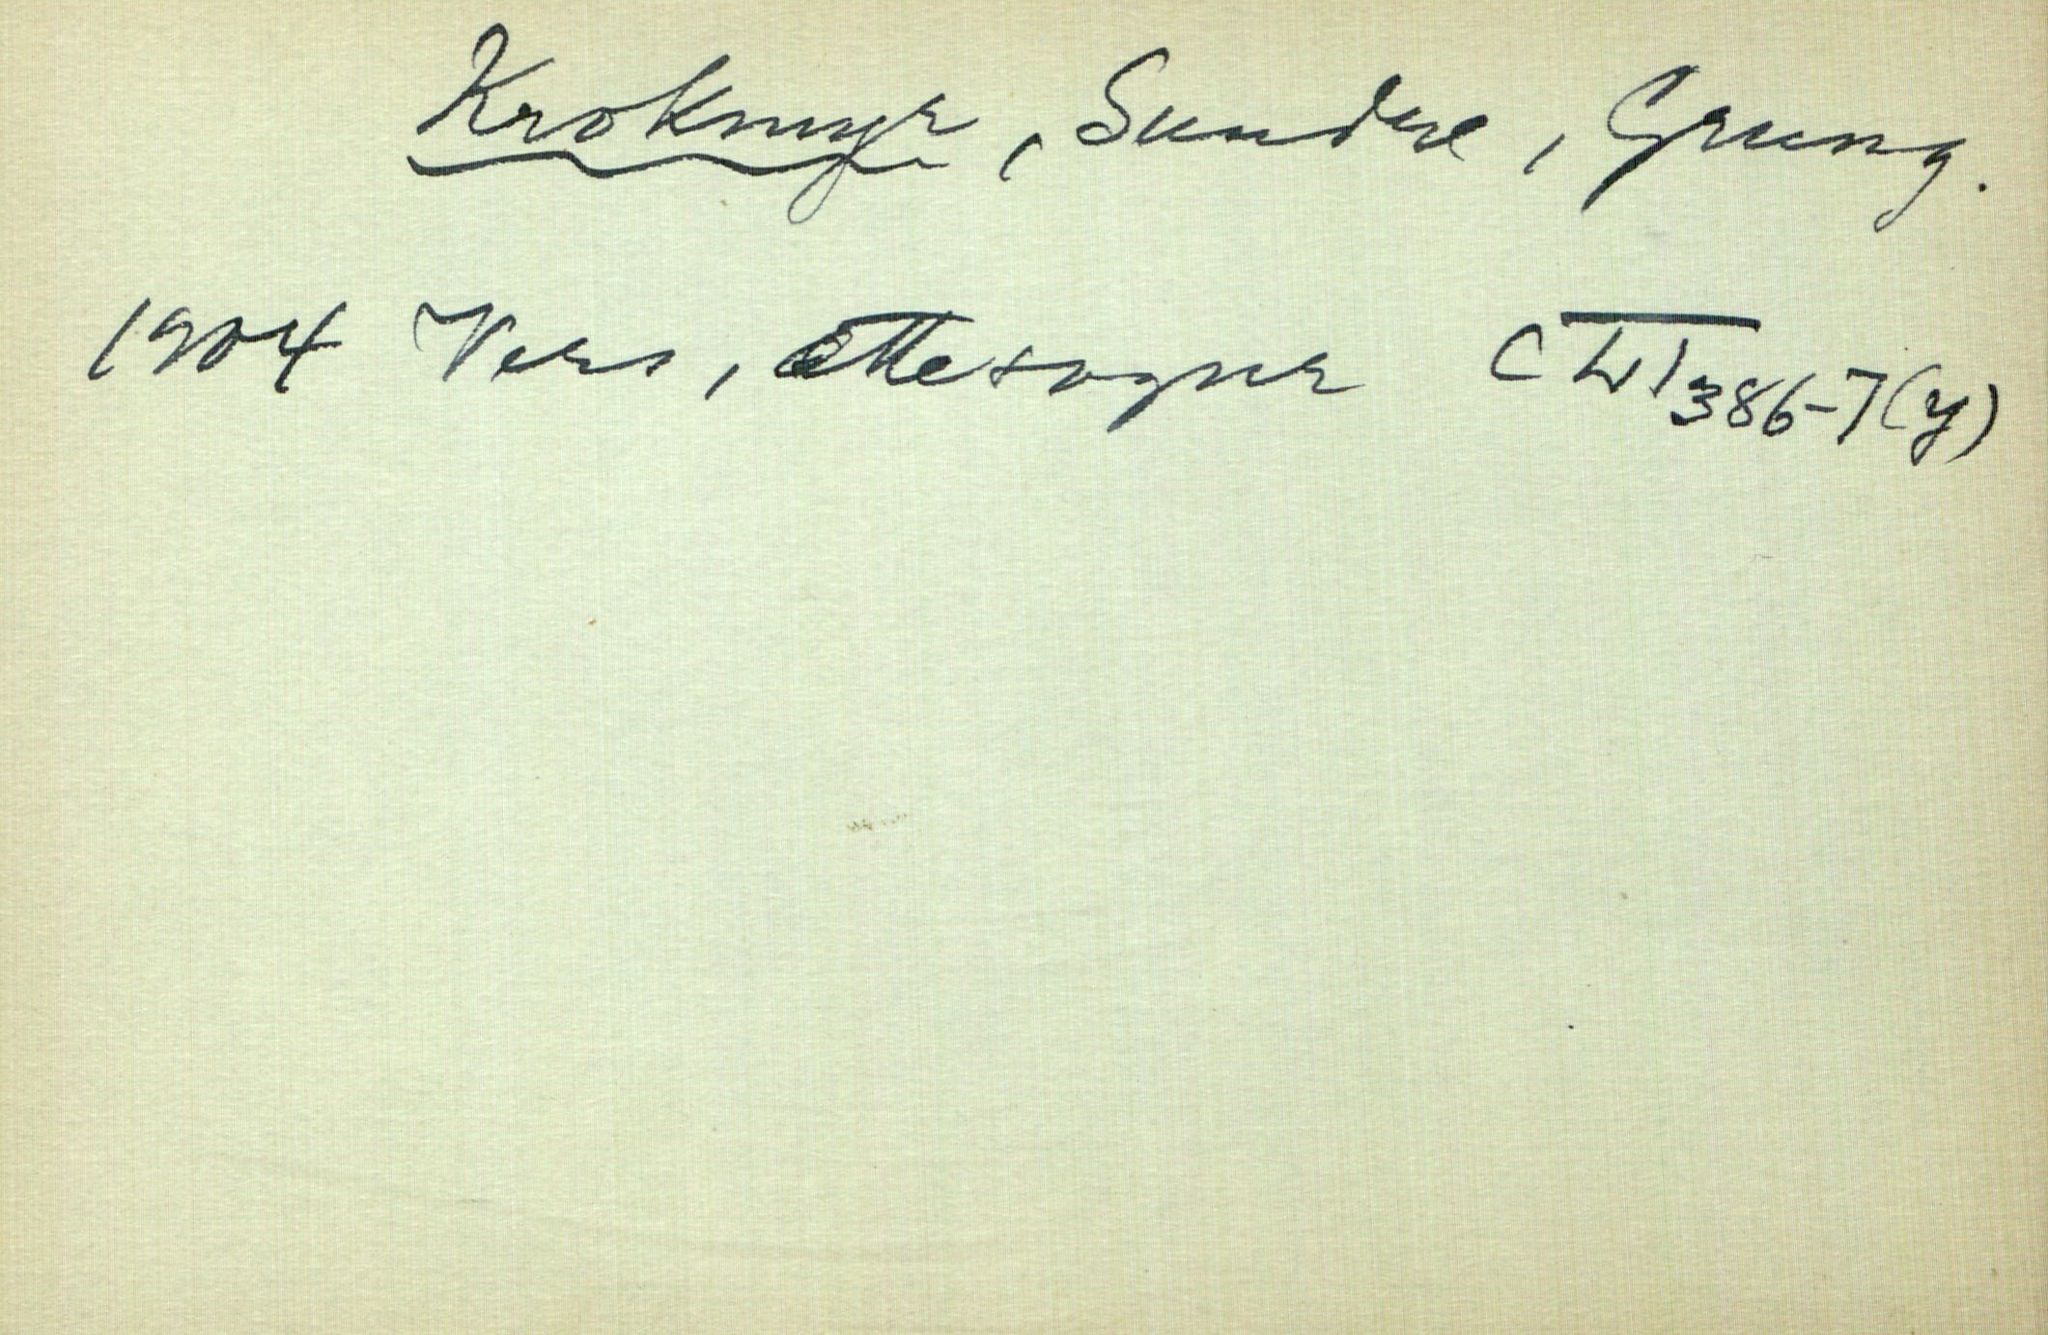 Krokmyr, Sundre, Grung.
1904 Vers, ættesogur CVI 386-7 (y)